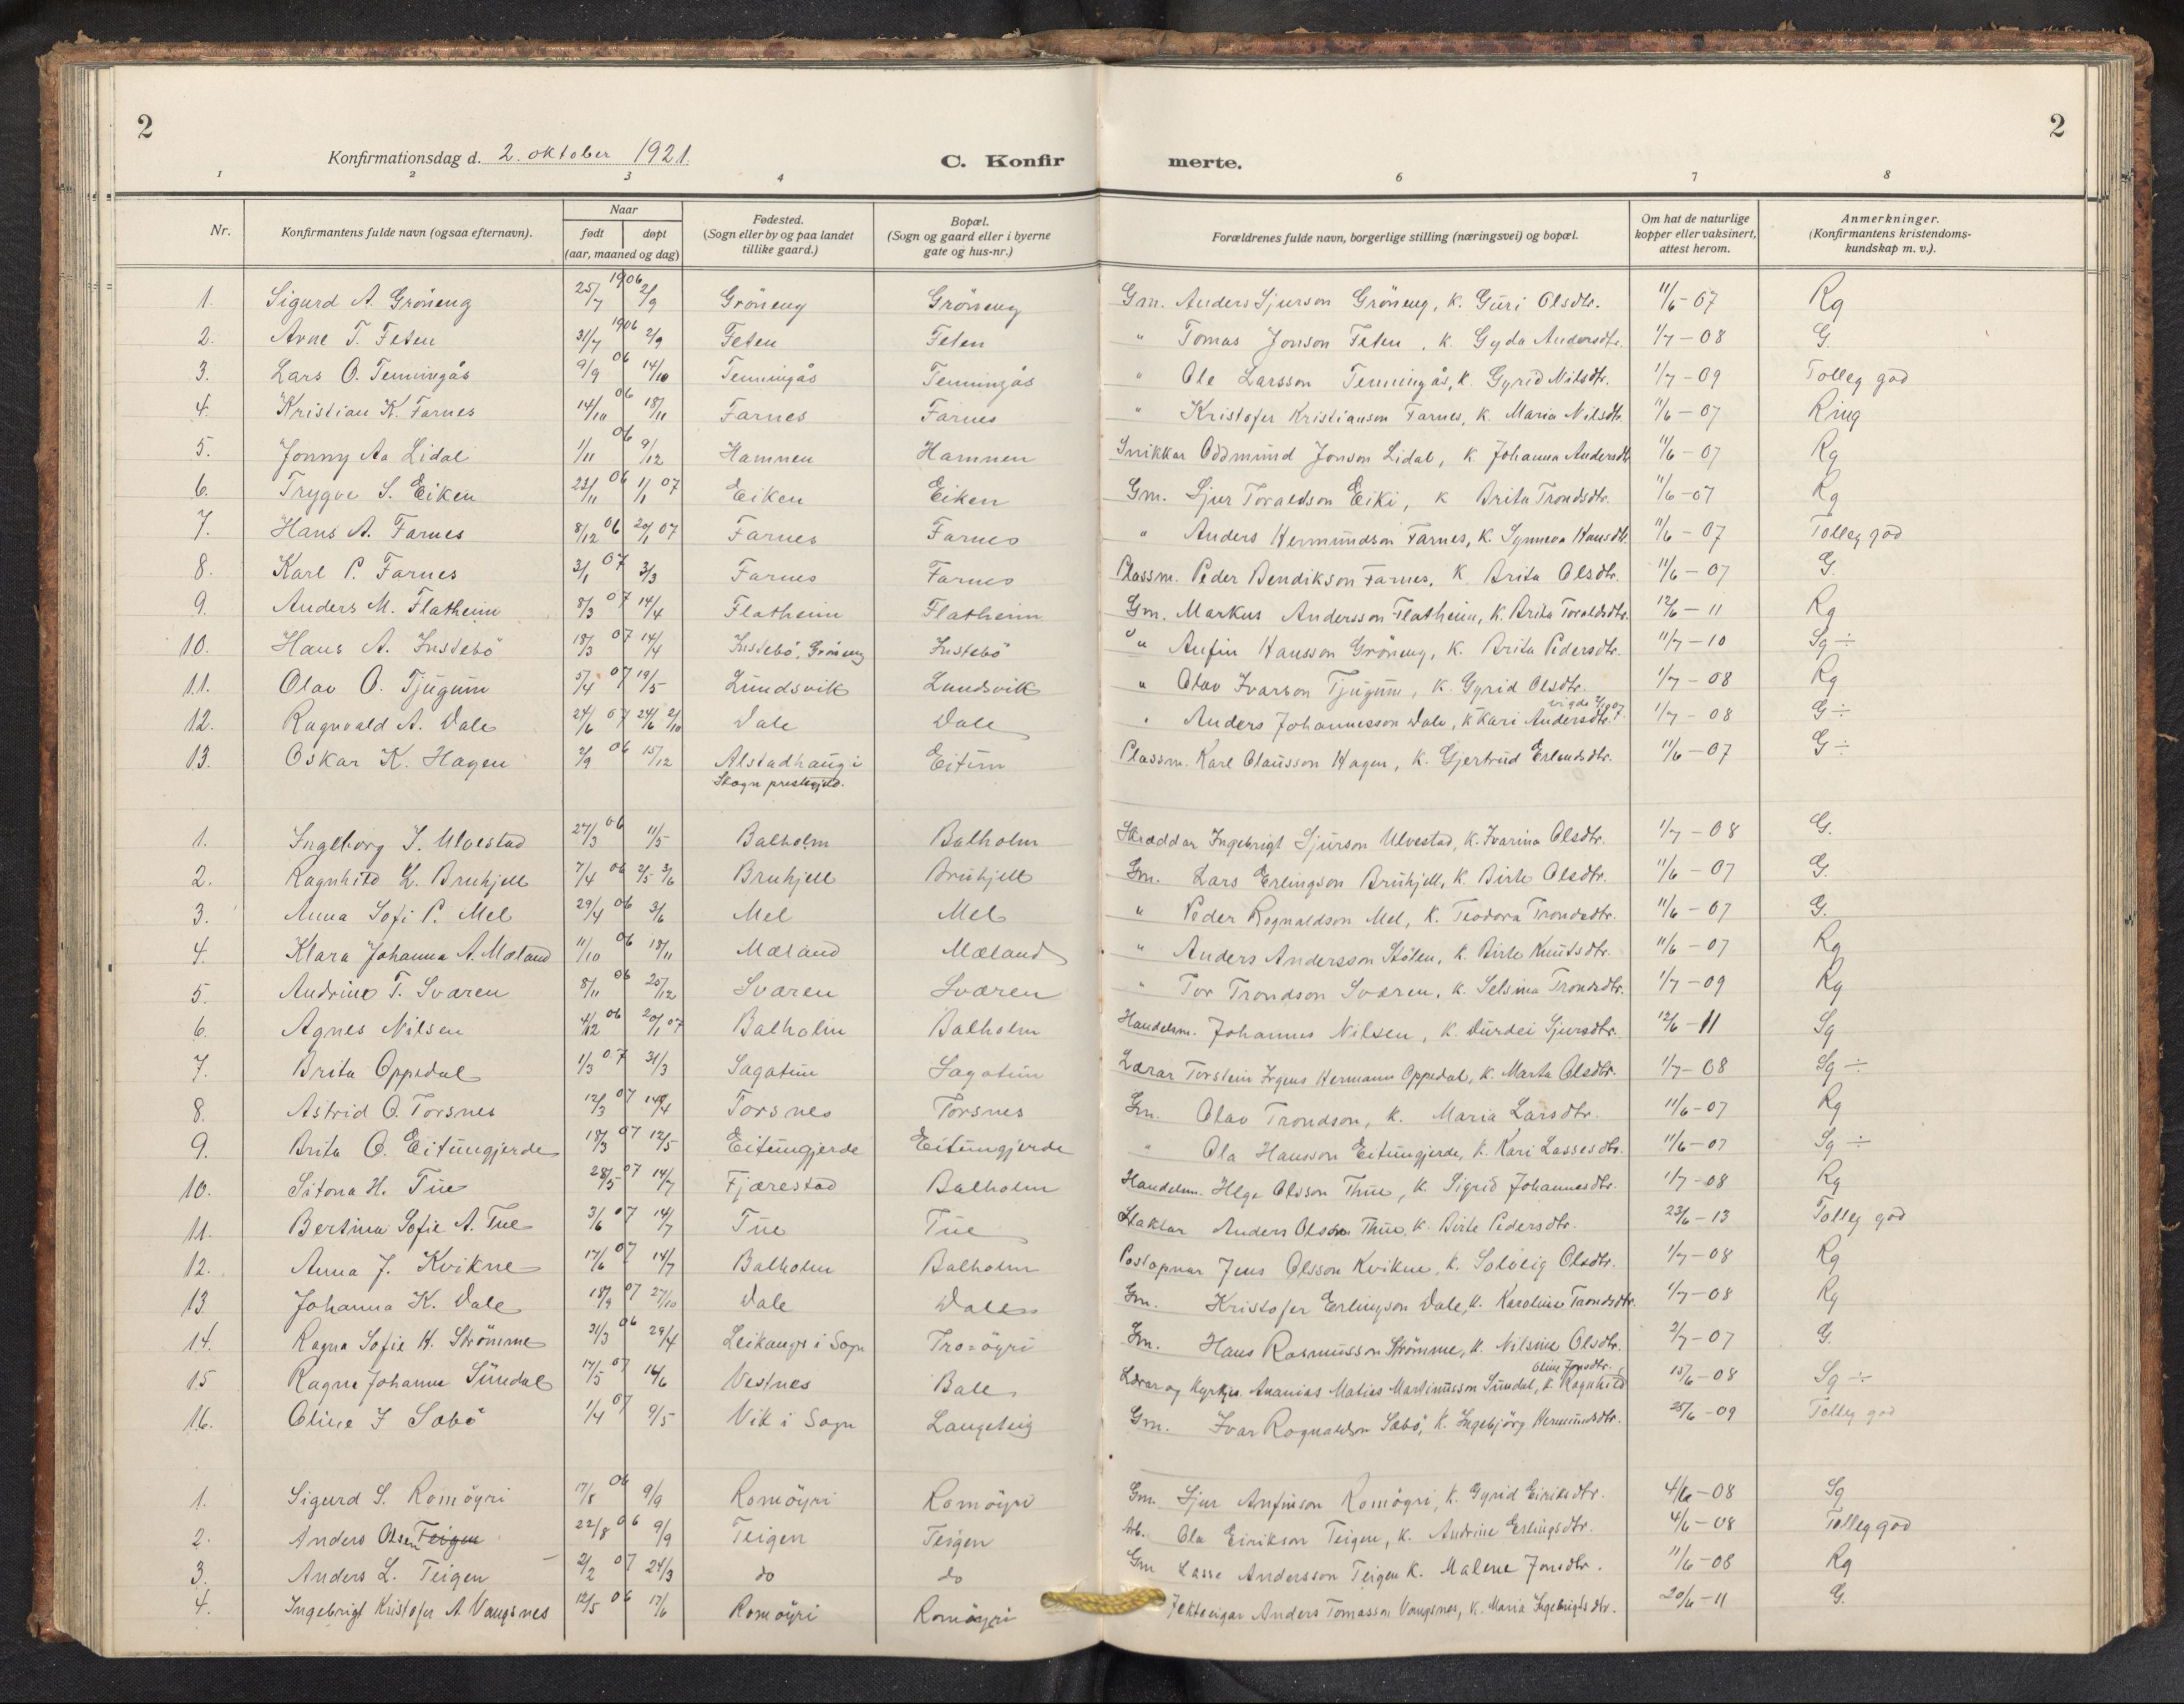 2
2
Konfirmationsdag d. 2. oktober 1921.
C. Konfirmerte.
1 2 3 4 6 7 8
Nr. Konfirmantens fulde navn (ogsaa efternavn). Naar født døpt (aar, maaned og dag) Fødested. (Sogn eller by og paa landet tillike gaard.) Bopæl. (Sogn og gaard eller i byerne gate og hus-nr.) Forældrenes fulde navn, borgerlige stilling (næringsvei) og bopæl. Om hat de naturlige kopper eller vaksinert, attest herom. Anmerkninger. (Konfirmantens kristendoms-kundskap m. v.).
1. Sigurd A. Gröneng 25/7 1906 2/9 Gröneng Gröneng Gm. Anders Sjurson Gröneng, k. Guri Olsdtr. 11/6-07 Rg
2. Arne T. Feten 31/7 1906 2/9 Feten Feten " Tomas Jonson Feten, k. Gyda Andersdtr. 1/7-08 G.
3. Lars O. Tenningås 9/9 06 14/10 Tenningås Tenningås " Ole Larsson Tenningås, k. Gyrid Nilsdtr. 1/7-09 Tolleg god
4. Kristian K. Farnes 14/10 06 18/11 Farnes Farnes " Kristofer Kristianson Farnes, k. Maria Nilsdtr. 11/6-07 Ring
5. Jonny Aa Lidal 1/11 06 9/12 Hamnen Hamnen Snikkar Oddmund Jonson Lidal, k. Johanna Andersdtr. 11/6-07 Rg
6. Trygve S. Eiken 23/11 06 1/1 07 Eiken Eiken Gm. Sjur Toraldson Eiki, k Brita Trondsdtr. 11/6-07 Rg
7. Hans A. Farnes 8/12 06 20/1 07 Farnes Farnes " Anders Hermundson Farnes, k. Synneva Hansdtr. 11/6-07 Tolleg god
8. Karl P. Farnes 3/1 07 3/3 Farnes Farnes Plassm. Peder Bendikson Farnes, k. Brita Olsdtr. 11/6-07 G.
9. Anders M. Flatheim 8/3 07 14/4 Flatheim Flatheim Gm. Markus Andersson Flatheim, k. Brita Toraldsdtr. 12/6-11 Rg
10. Hans A. Instebö 18/3 07 14/4 Instebö, Gröneng Instebö " Anfin Hansson Gröneng, k. Brita Pedersdtr. 11/7-10 Sg ÷
11. Olav O. Tjugum 5/4 07 19/5 Lundsvik Lundsvik " Olav Ivarson Tjugum, k. Gyrid Olsdtr. 1/7-08 Rg
12. Ragnvald A. Dale 24/6 07 24/6 2/10 Dale Dale " Anders Johannesson Dale, k Kari Andersdtr. 1/7-08 G ÷
13. Oskar K. Hagen 2/9 06 15/12 Alstadhaug i Skogn prestegjeld. Eitun Plassm. Karl Olausson Hagen, k. Gjertrud Erlendsdtr. 11/6-07 G ÷
1. Ingeborg I. Ulvestad 27/3 06 11/5 Balholm Balholm Skræddar Ingebrigt Sjurson Ulvestad, k. Ivarina Olsdtr. 1/7-08 G.
2. Ragnhild L. Bruhjell 7/4 06 2/5 3/6 Bruhjell Bruhjell Gm. Lars Erlingson Bruhjell, k. Birte Olsdtr. 11/6-07 G.
3. Anna Sofi P. Mel 29/4 06 3/6 Mel Mel " Peder Rognaldson Mel, k. Teodora Trondsdtr. 11/6-07 G.
4. Klara Johanna A. Mæland 11/10 06 18/11 Mæland Mæland " Anders Andersson Stölen, k. Birte Knutsdtr. 11/6-07 Rg
5. Andrine T. Sværen 8/11 06 25/12 Sværen Sværen " Tor Trondson Sværen, k. Selsina Trondsdtr. 1/7-09 Rg
6. Agnes Nilsen 4/12 06 20/1 07 Balholm Balholm Handelsm. Johannes Nilsen, k. Durdei Sjursdtr. 12/6-11 Sg
7. Brita Oppedal 1/3 07 31/3 Sagatun Sagatun Lærar Torstein Irgens Hermann Oppedal, k. Marta Olsdtr. 1/7-08 Sg ÷
8. Astrid O. Torsnes 12/3 07 14/4 Torsnes Torsnes Gm. Olav Trondson, k. Maria Larsdtr. 11/6-07 Rg
9. Brita O. Eitungjerde 18/3 07 12/5 Eitungjerde Eitungjerde " Ola Hansson Eitungjerde, k. Kari Lassesdtr. 11/6-07 Sg ÷
10. Sitona H. Tue 28/5 07 14/7 Fjærestad Balholm Handelsm. Helge Olsson Thue, k. Sigrid Johannesdtr. 1/7-08 Rg
11. Bertina Sofie A. Tue 3/6 07 14/7 Tue Tue Slaktar Anders Olsson Thue, k. Birte Pedersdtr. 23/6-13 Tolleg god
12. Anna J. Kvikne 17/6 07 14/7 Balholm Balholm Postopnar Jens Olsson Kvikne, k. Solveig Olsdtr. 1/7-08 Rg
13 Johanna K. Dale 18/9 07 27/10 Dale Dale Gm. Kristofer Erlingson Dale, k. Karoline Trondsdtr. 1/7-08 Rg
14. Ragna Sofie H. Strömme 31/3 06 29/4 Leikanger i Sogn Gm. Hans Rasmusson Strömme, k. Nilsine Olsdtr. 2/7-07 G.
15 Ragna Johanne Sundal 17/5 07 16/6 Vestnes Bale Lærar og kyrkjes. Ananias Matias Martinusson Sundal, k. Ragnhild Oline Jonsdtr. 15/6-08 Sg ÷
16. Oline I Sæbö 1/4 07 9/5 Vik i Sogn Langeteig Gm. Ivar Rognaldson Sæbö, k. Ingebjörg Hermundsdtr. 25/6-09 Tolleg god
1. Sigurd S. Romöyri 17/8 06 9/9 Romöyri Romöyri Gm. Sjur Anfinson Romöyri, k. Gyrid Eiriksdtr. 4/6-08 Sg
2. Anders Olsen Teigen 22/8 06 9/9 Teigen Teigen Arb. Ola Eirikson Teigen, k. Andrine Erlingsdtr. 4/6-08 Tolleg god
3. Anders L. Teigen 2/2 07 24/3 do do Gm Lasse Andersson Teigen k. Malene Jonsdtr. 11/6-08 Rg
4. Ingebrigt Kristofer A. Vangsnes 12/5 06 17/6 Romöyri Romöyri Jekteeigar Anders Tomasson Vangsnes, k. Maria Ingebrigtsdtr. 20/6-11 G.